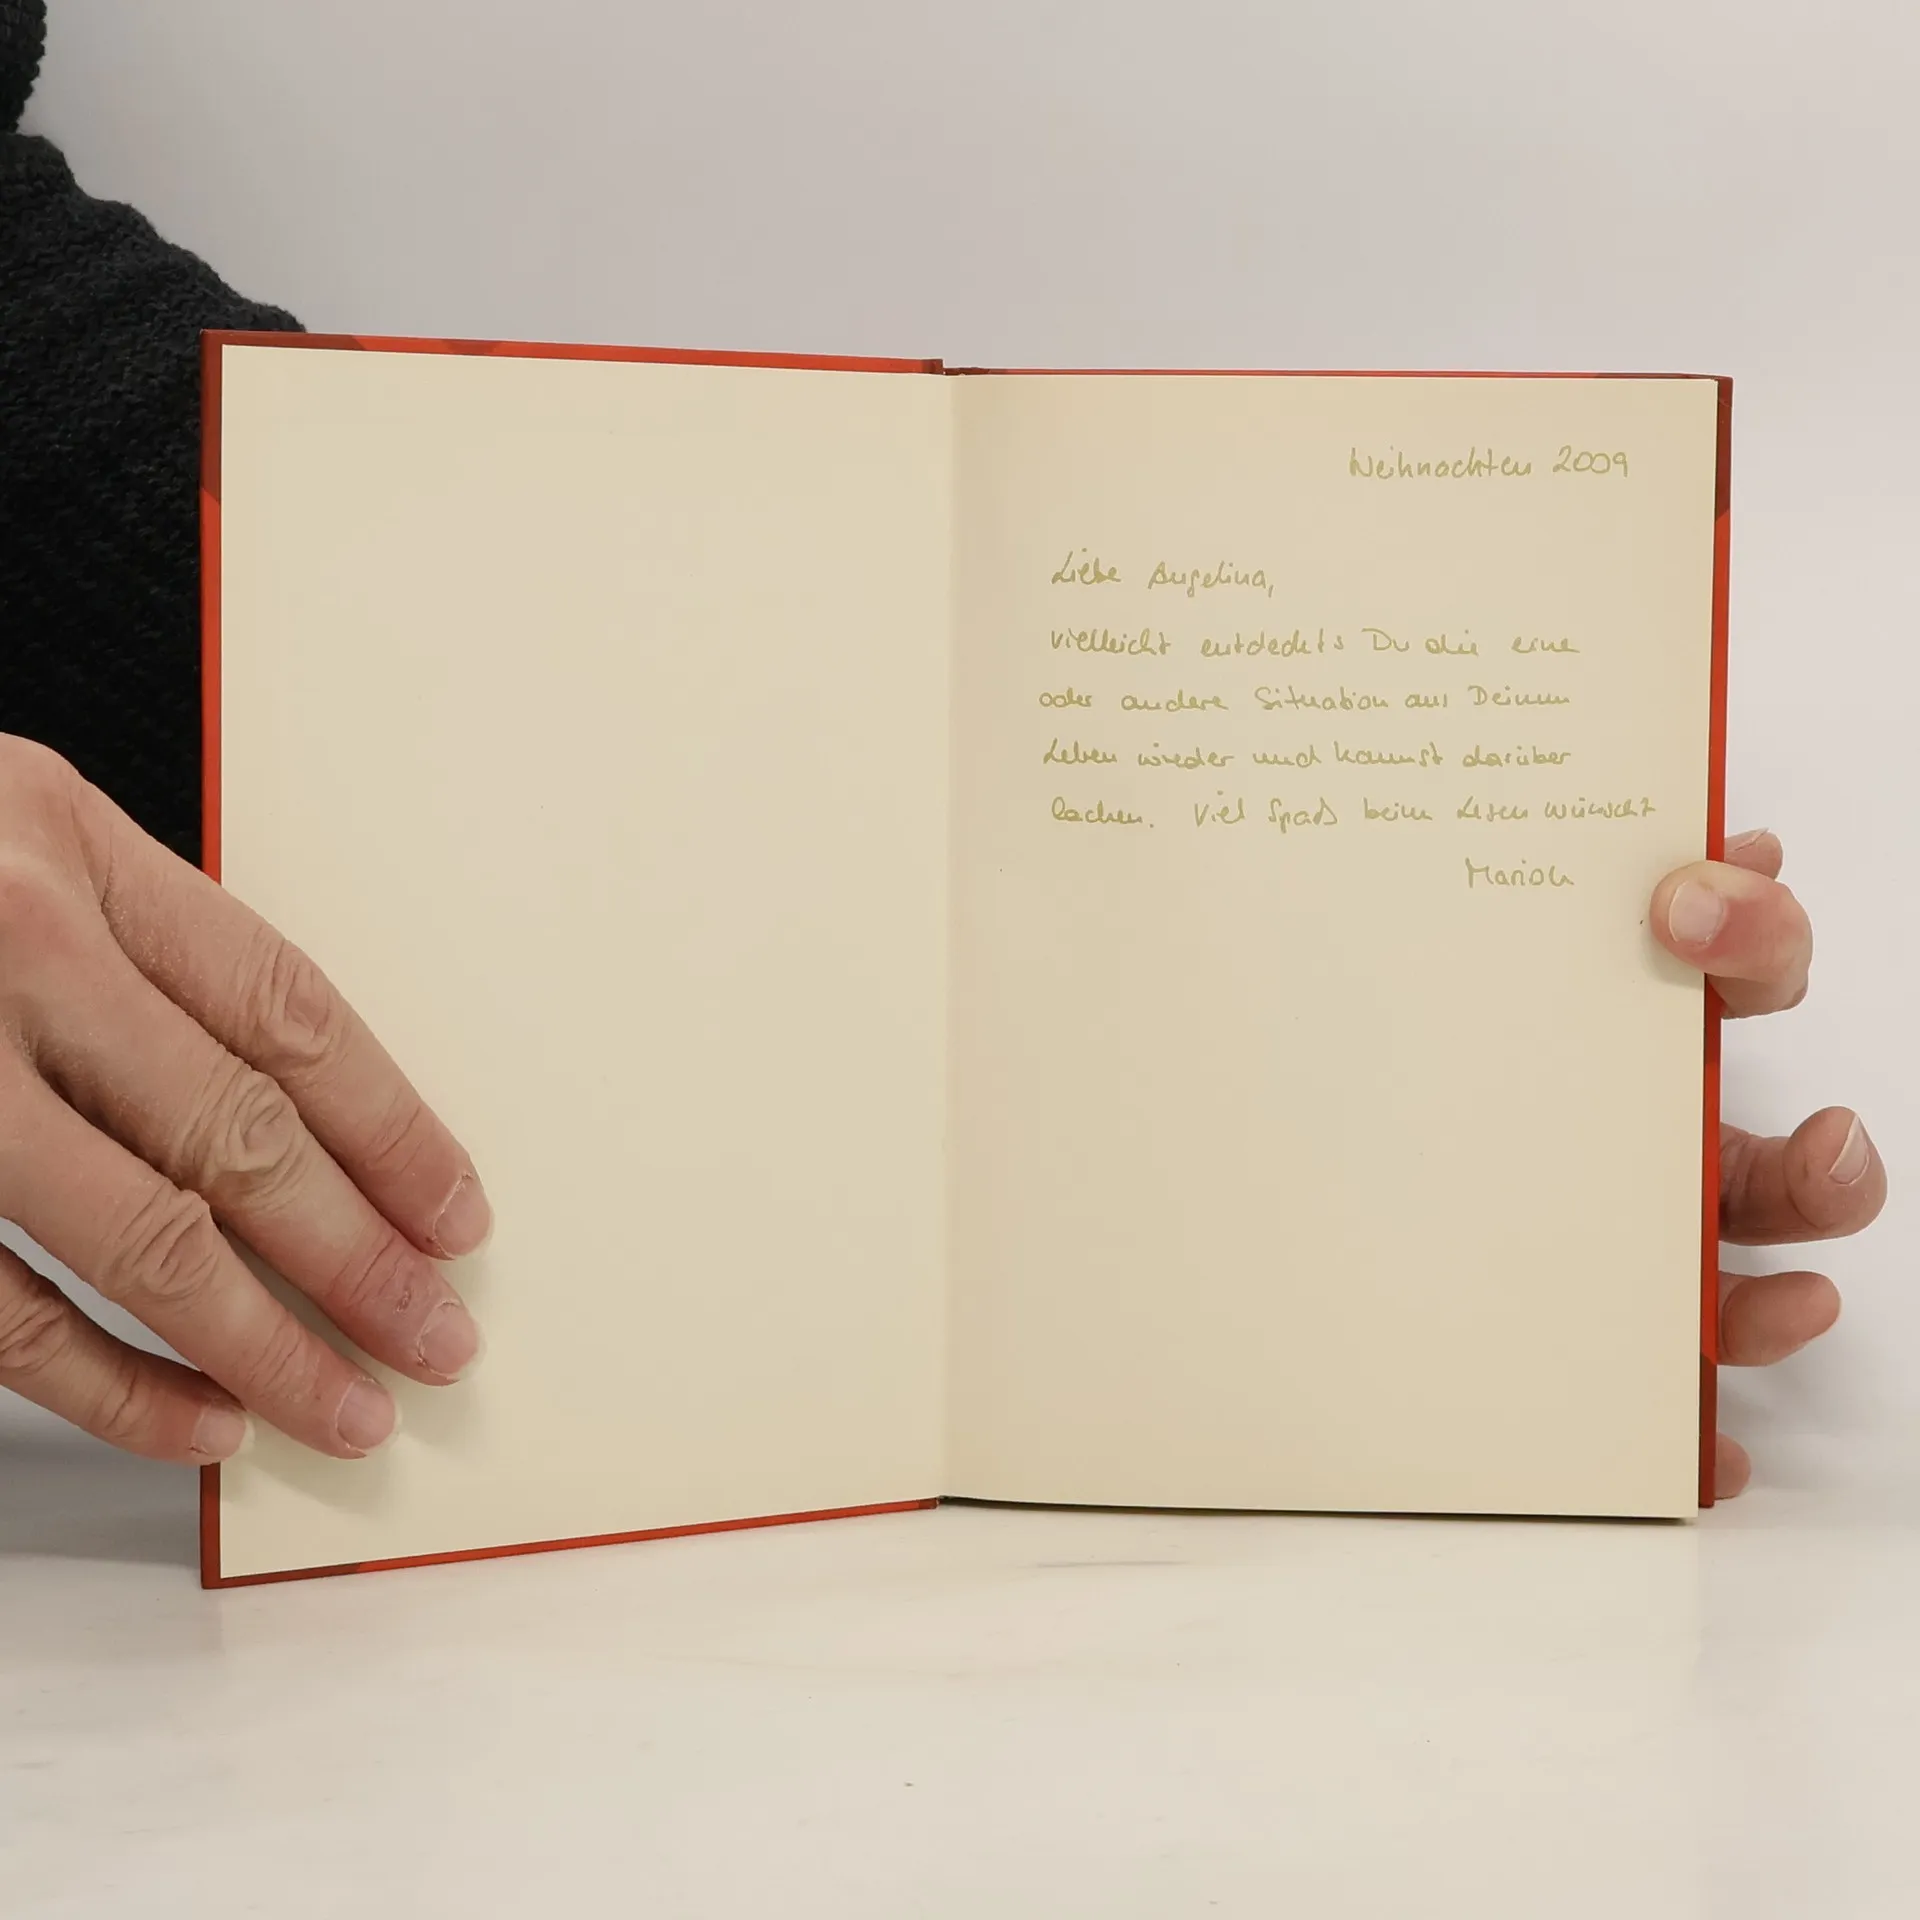 Weihnachten 2009
Liebe Angelina,
vielleicht entdeckts Du die eine
oder andere Situation aus Deinem
Leben wieder und kannst darüber
lachen. Viel Spaß beim Lesen wünscht